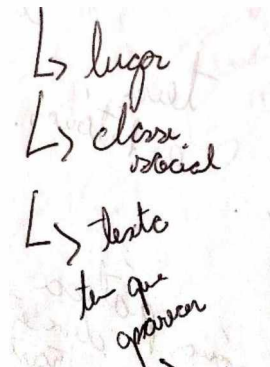 ↳ lugar
↳ classe
social
↳ texto
ter que
aparecer